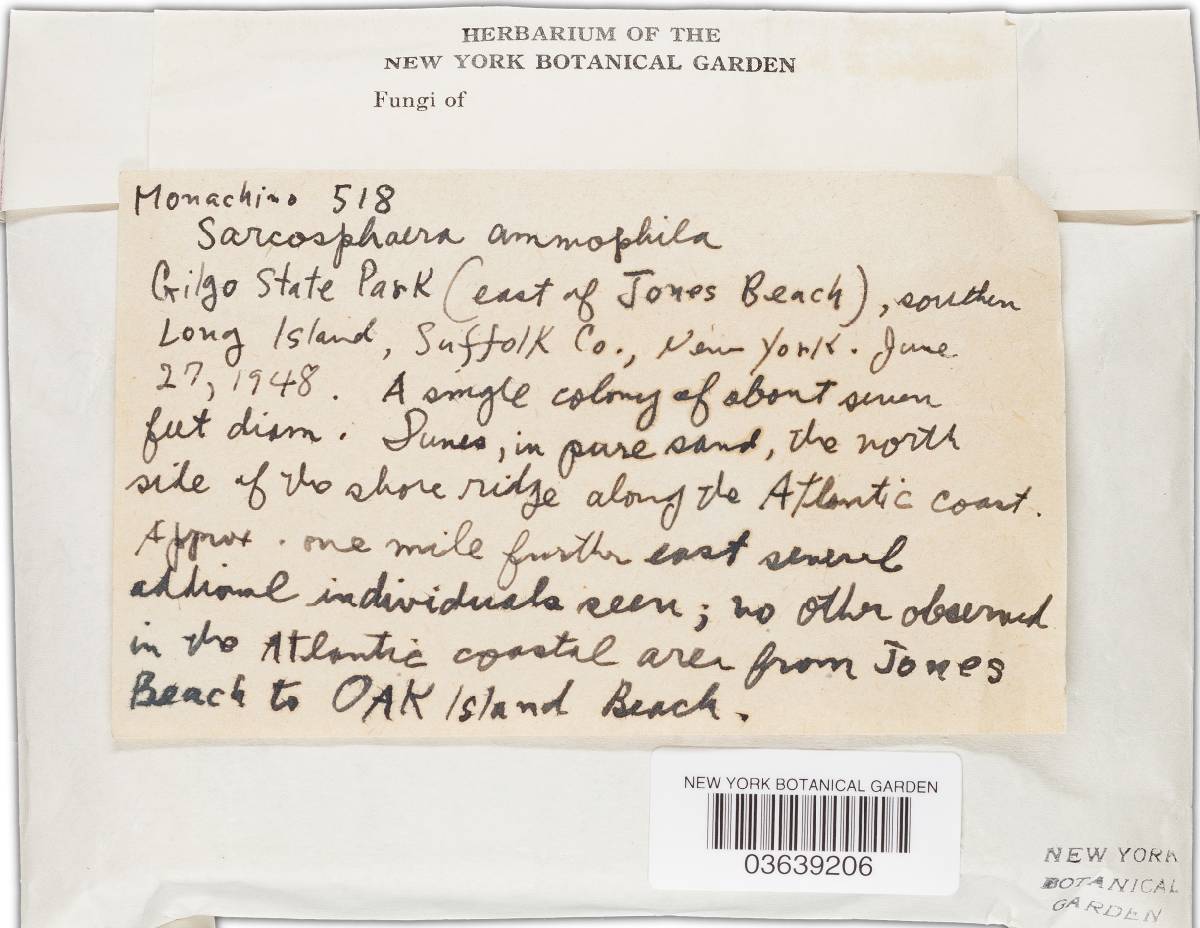 HERBARIUM OF THE
NEW YORK BOTANICAL GARDEN
Fungi of
Monachino 518
Sarcosphaera ammophila
Gilgo State Park (east of Jones Beach), southern
Long Island, Suffolk Co., New York. June
27, 1948. A single colony of about seven
feet diam. Dunes, in pure sand, the north
side of the shore ridge along the Atlantic coast.
Approx. one mile further east several
addional individuals seen; no other observed
in the Atlantic coastal area from Jones
Beach to OAK Island Beach.
NEW YORK BOTANICAL GARDEN
03639206
NEW YORK
BOTANICAL
GARDEN